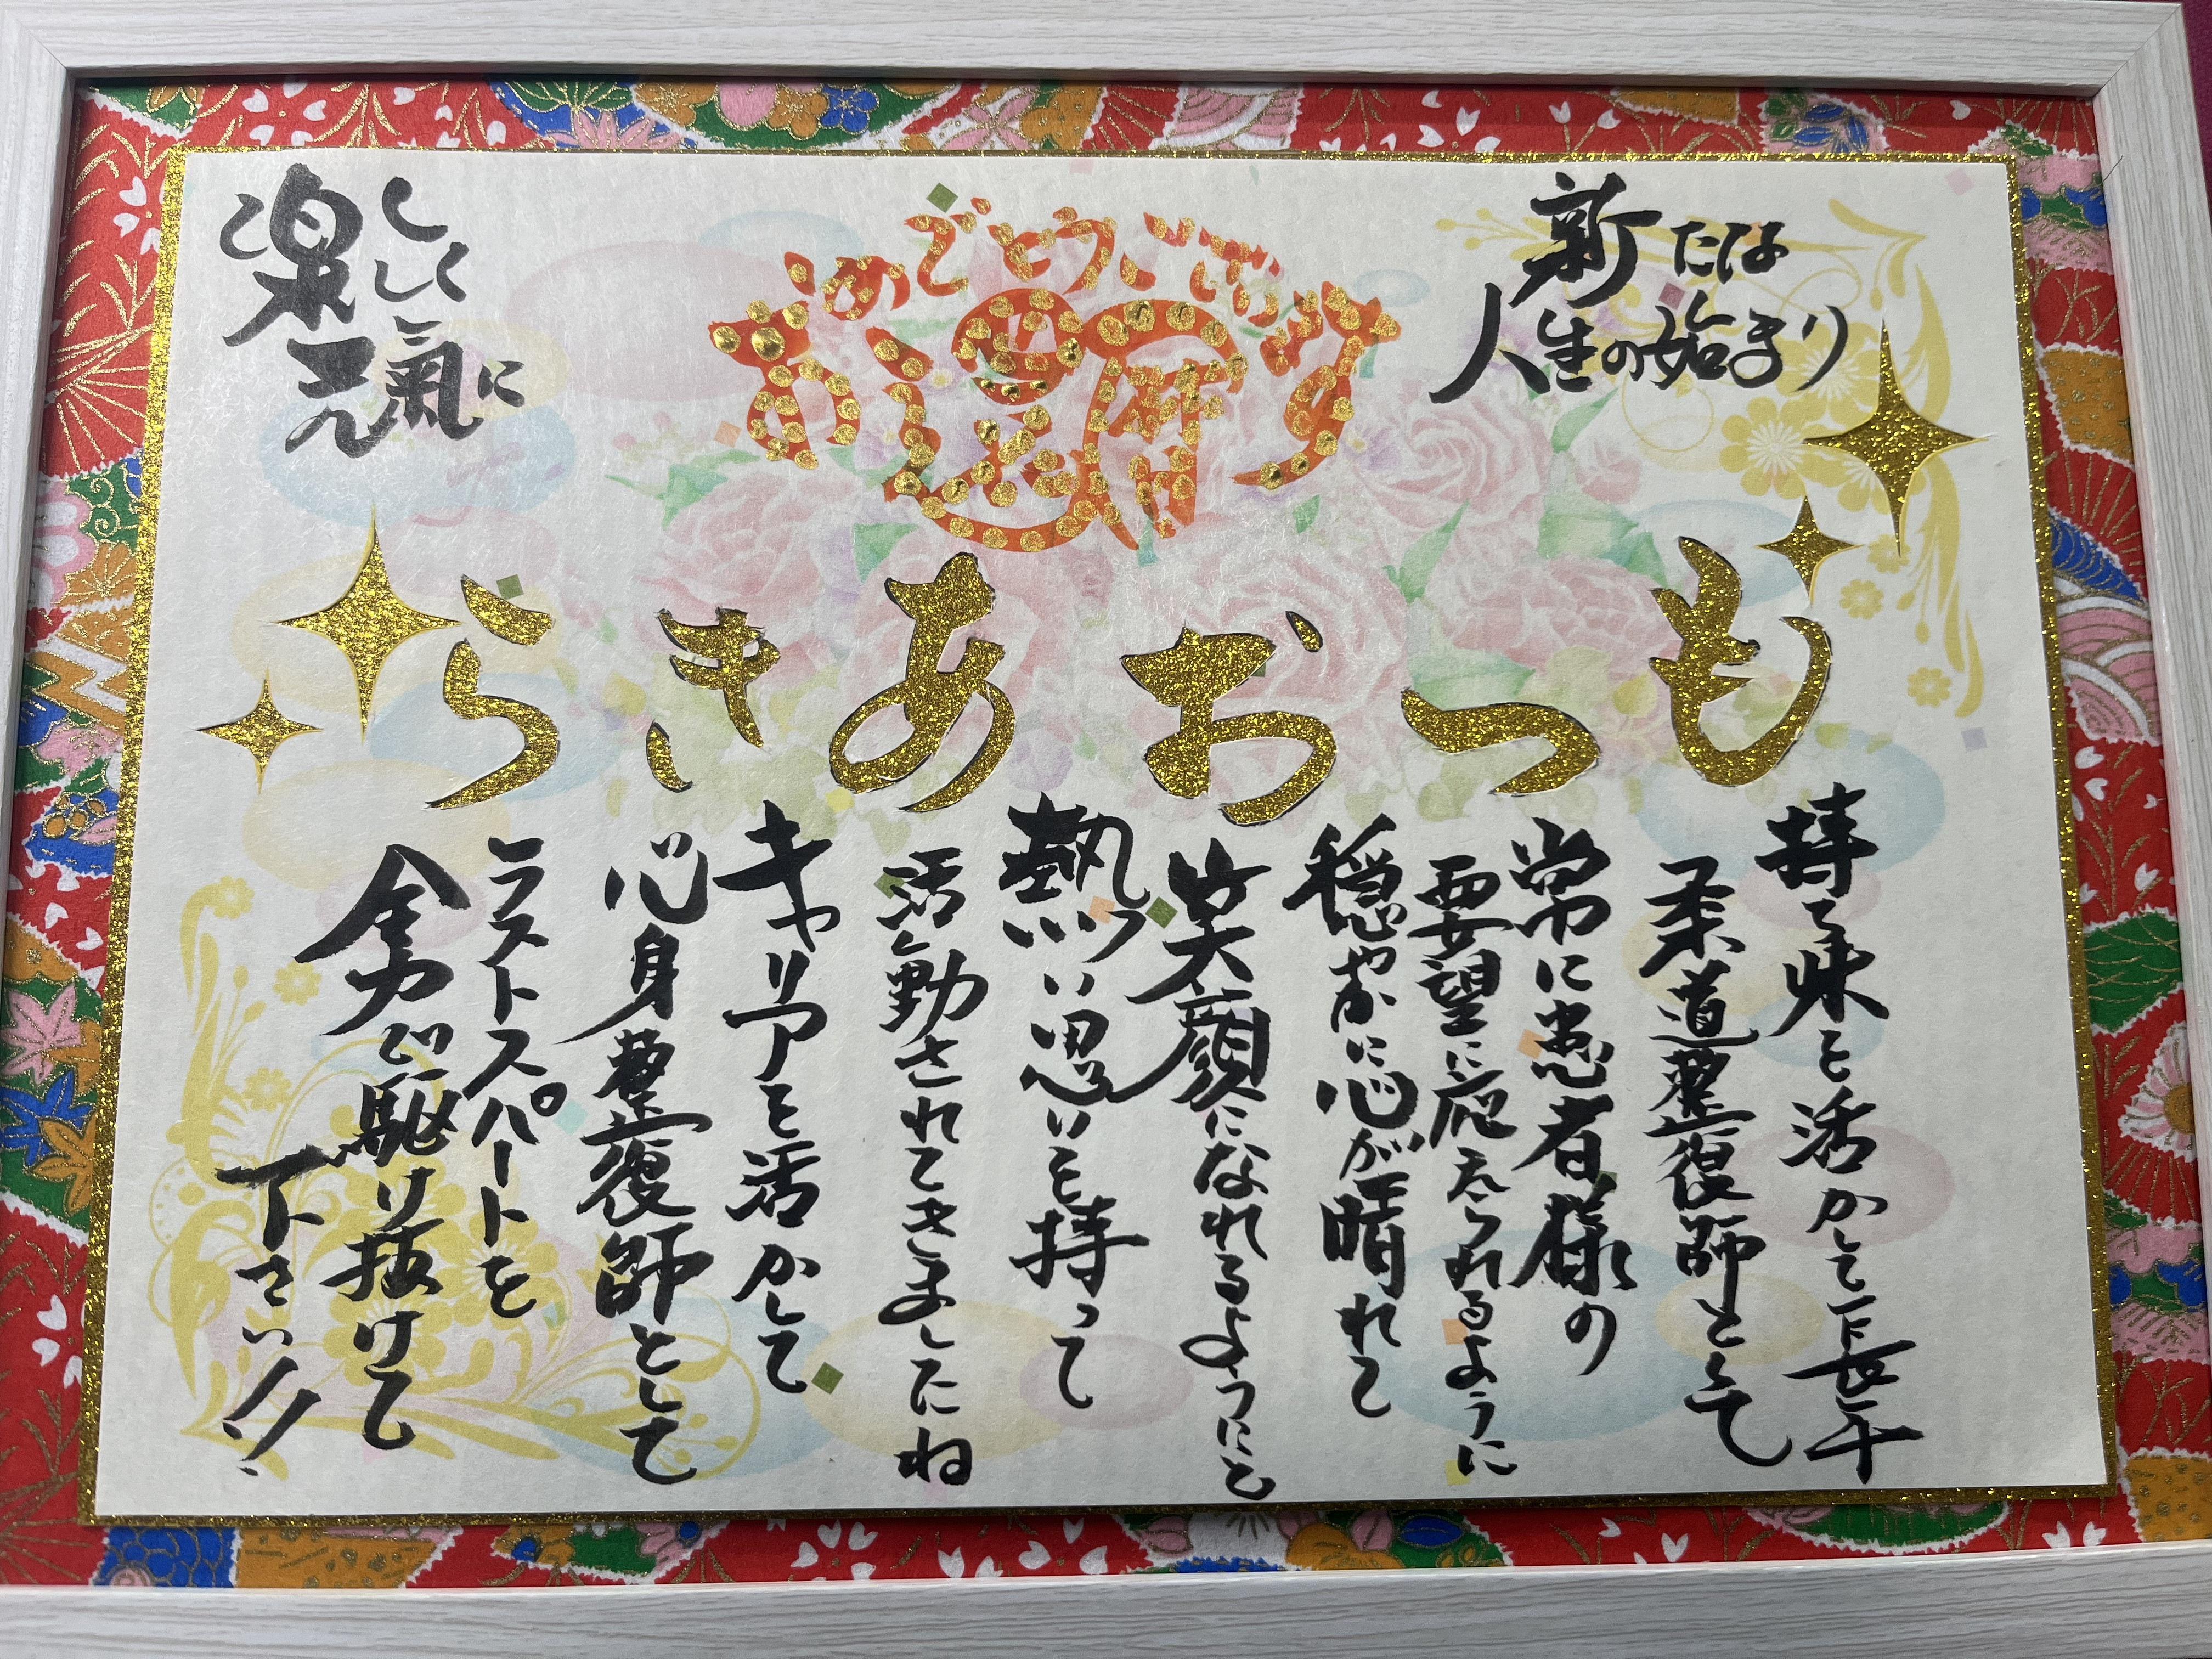 新たな
人生の始まり
おめでとうございます
還暦
楽しく
元氣に
もつおあきら
持ち味を活かして長年
柔道整復師として
常に患者様の
要望に応えられるように
穏やかに心が晴れて
笑顔になれるようにと
熱い思いを持って
活動されてきましたね
キャリアを活かして
心身整復師として
ラストスパートを
全力で駆け抜けて
下さい!!